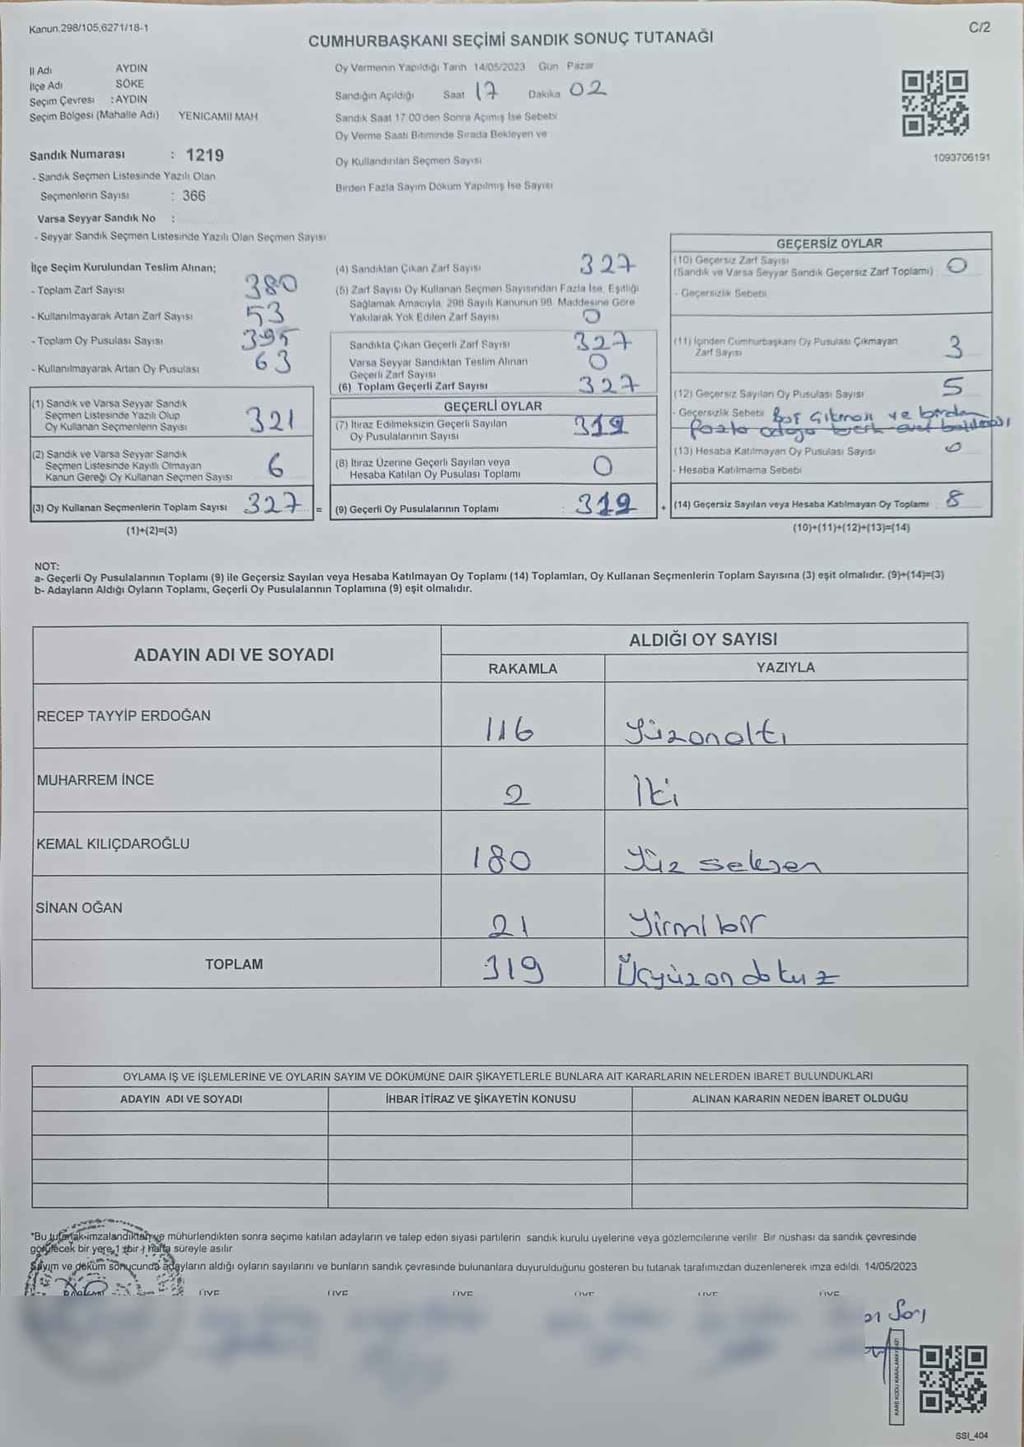 Kanun,298/105,6271/18-1
C/2
CUMHURBAŞKANI SEÇİMİ SANDIK SONUÇ TUTANAĞI
İl Adı AYDIN
İlçe Adı SÖKE
Seçim Çevresi :AYDIN
Seçim Bölgesi (Mahalle Adı) YENICAMII MAH
Sandık Numarası : 1219
- Sandık Seçmen Listesinde Yazılı Olan
Seçmenlerin Sayısı : 366
Varsa Seyyar Sandık No :
- Seyyar Sandık Seçmen Listesinde Yazılı Olan Seçmen Sayısı
Oy Vermenin Yapıldığı Tarih 14/05/2023 Gün Pazar
Sandığın Açıldığı Saat 17 Dakika 02
Sandık Saat 17.00'den Sonra Açımış İse Sebebi
Oy Verme Saati Bitiminde Sırada Bekleyen ve
Oy Kullandırılan Seçmen Sayısı
Birden Fazla Sayım Döküm Yapılmış İse Sayısı
1093706191
İlçe Seçim Kurulundan Teslim Alınan;
- Toplam Zarf Sayısı 380
- Kullanılmayarak Artan Zarf Sayısı 53
- Toplam Oy Pusulası Sayısı 395
- Kullanılmayarak Artan Oy Pusulası 63
(1) Sandık ve Varsa Seyyar Sandık
Seçmen Listesinde Yazılı Olup
Oy Kullanan Seçmenlerin Sayısı 321
(2) Sandık ve Varsa Seyyar Sandık
Seçmen Listesinde Kayıtlı Olmayan
Kanun Gereği Oy Kullanan Seçmen Sayısı 6
(3) Oy Kullanan Seçmenlerin Toplam Sayısı 327 =
(1)+(2)=(3)
(4) Sandıktan Çıkan Zarf Sayısı 327
(5) Zarf Sayısı Oy Kullanan Seçmen Sayısından Fazla İse, Eşitliği
Sağlamak Amacıyla, 298 Sayılı Kanunun 98. Maddesine Göre
Yakılarak Yok Edilen Zarf Sayısı 0
Sandıkta Çıkan Geçerli Zarf Sayısı 327
Varsa Seyyar Sandıktan Teslim Alınan
Geçerli Zarf Sayısı 0
(6) Toplam Geçerli Zarf Sayısı 327
GEÇERLİ OYLAR
(7) İtiraz Edilmeksizin Geçerli Sayılan
Oy Pusulalarının Sayısı 319
(8) İtiraz Üzerine Geçerli Sayılan veya
Hesaba Katılan Oy Pusulası Toplamı 0
(9) Geçerli Oy Pusulalarının Toplamı : 319 +
GEÇERSİZ OYLAR
(10) Geçersiz Zarf Sayısı
(Sandık ve Varsa Seyyar Sandık Geçersiz Zarf Toplamı) 0
- Geçersizlik Sebebi
(11) İçinden Cumhurbaşkanı Oy Pusulası Çıkmayan
Zarf Sayısı 3
(12) Geçersiz Sayılan Oy Pusulası Sayısı 5
- Geçersizlik Sebebi Boş Çıkması ve birden
fazla adaya
(13) Hesaba Katılmayan Oy Pusulası Sayısı 0
- Hesaba Katılmama Sebebi
(14) Geçersiz Sayılan veya Hesaba Katılmayan Oy Toplamı 8
(10)+(11)+(12)+(13)=(14)
NOT:
a- Geçerli Oy Pusulalarının Toplamı (9) ile Geçersiz Sayılan veya Hesaba Katılmayan Oy Toplamı (14) Toplamları, Oy Kullanan Seçmenlerin Toplam Sayısına (3) eşit olmalıdır. (9)+(14)=(3)
b- Adayların Aldığı Oyların Toplamı, Geçerli Oy Pusulalarının Toplamına (9) eşit olmalıdır.
ADAYIN ADI VE SOYADI
ALDIĞI OY SAYISI
RAKAMLA YAZIYLA
RECEP TAYYİP ERDOĞAN 116 Yüzonaltı
MUHARREM İNCE 2 İki
KEMAL KILIÇDAROĞLU 180 Yüz seksen
SİNAN OĞAN 21 Yirmi bir
TOPLAM 319 Üçyüzondokuz
OYLAMA İŞ VE İŞLEMLERİNE VE OYLARIN SAYIM VE DÖKÜMÜNE DAİR ŞİKAYETLERLE BUNLARA AİT KARARLARIN NELERDEN İBARET BULUNDUKLARI
ADAYIN ADI VE SOYADI İHBAR İTİRAZ VE ŞİKAYETİN KONUSU ALINAN KARARIN NEDEN İBARET OLDUĞU
*Bu tutanak imzalandıktan ve mühürlendikten sonra seçime katılan adayların ve talep eden siyasi partilerin sandık kurulu üyelerine veya gözlemcilerine verilir. Bir nüshası da sandık çevresinde
görülecek bir yere 1 (bir) hafta süreyle asılır.
Sayım ve döküm sonucunda adayların aldığı oyların sayılarını ve bunların sandık çevresinde bulunanlara duyurulduğunu gösteren bu tutanak tarafımızdan düzenlenerek imza edildi. 14/05/2023
ÜYE ÜYE ÜYE ÜYE ÜYE ÜYE
SSI_404